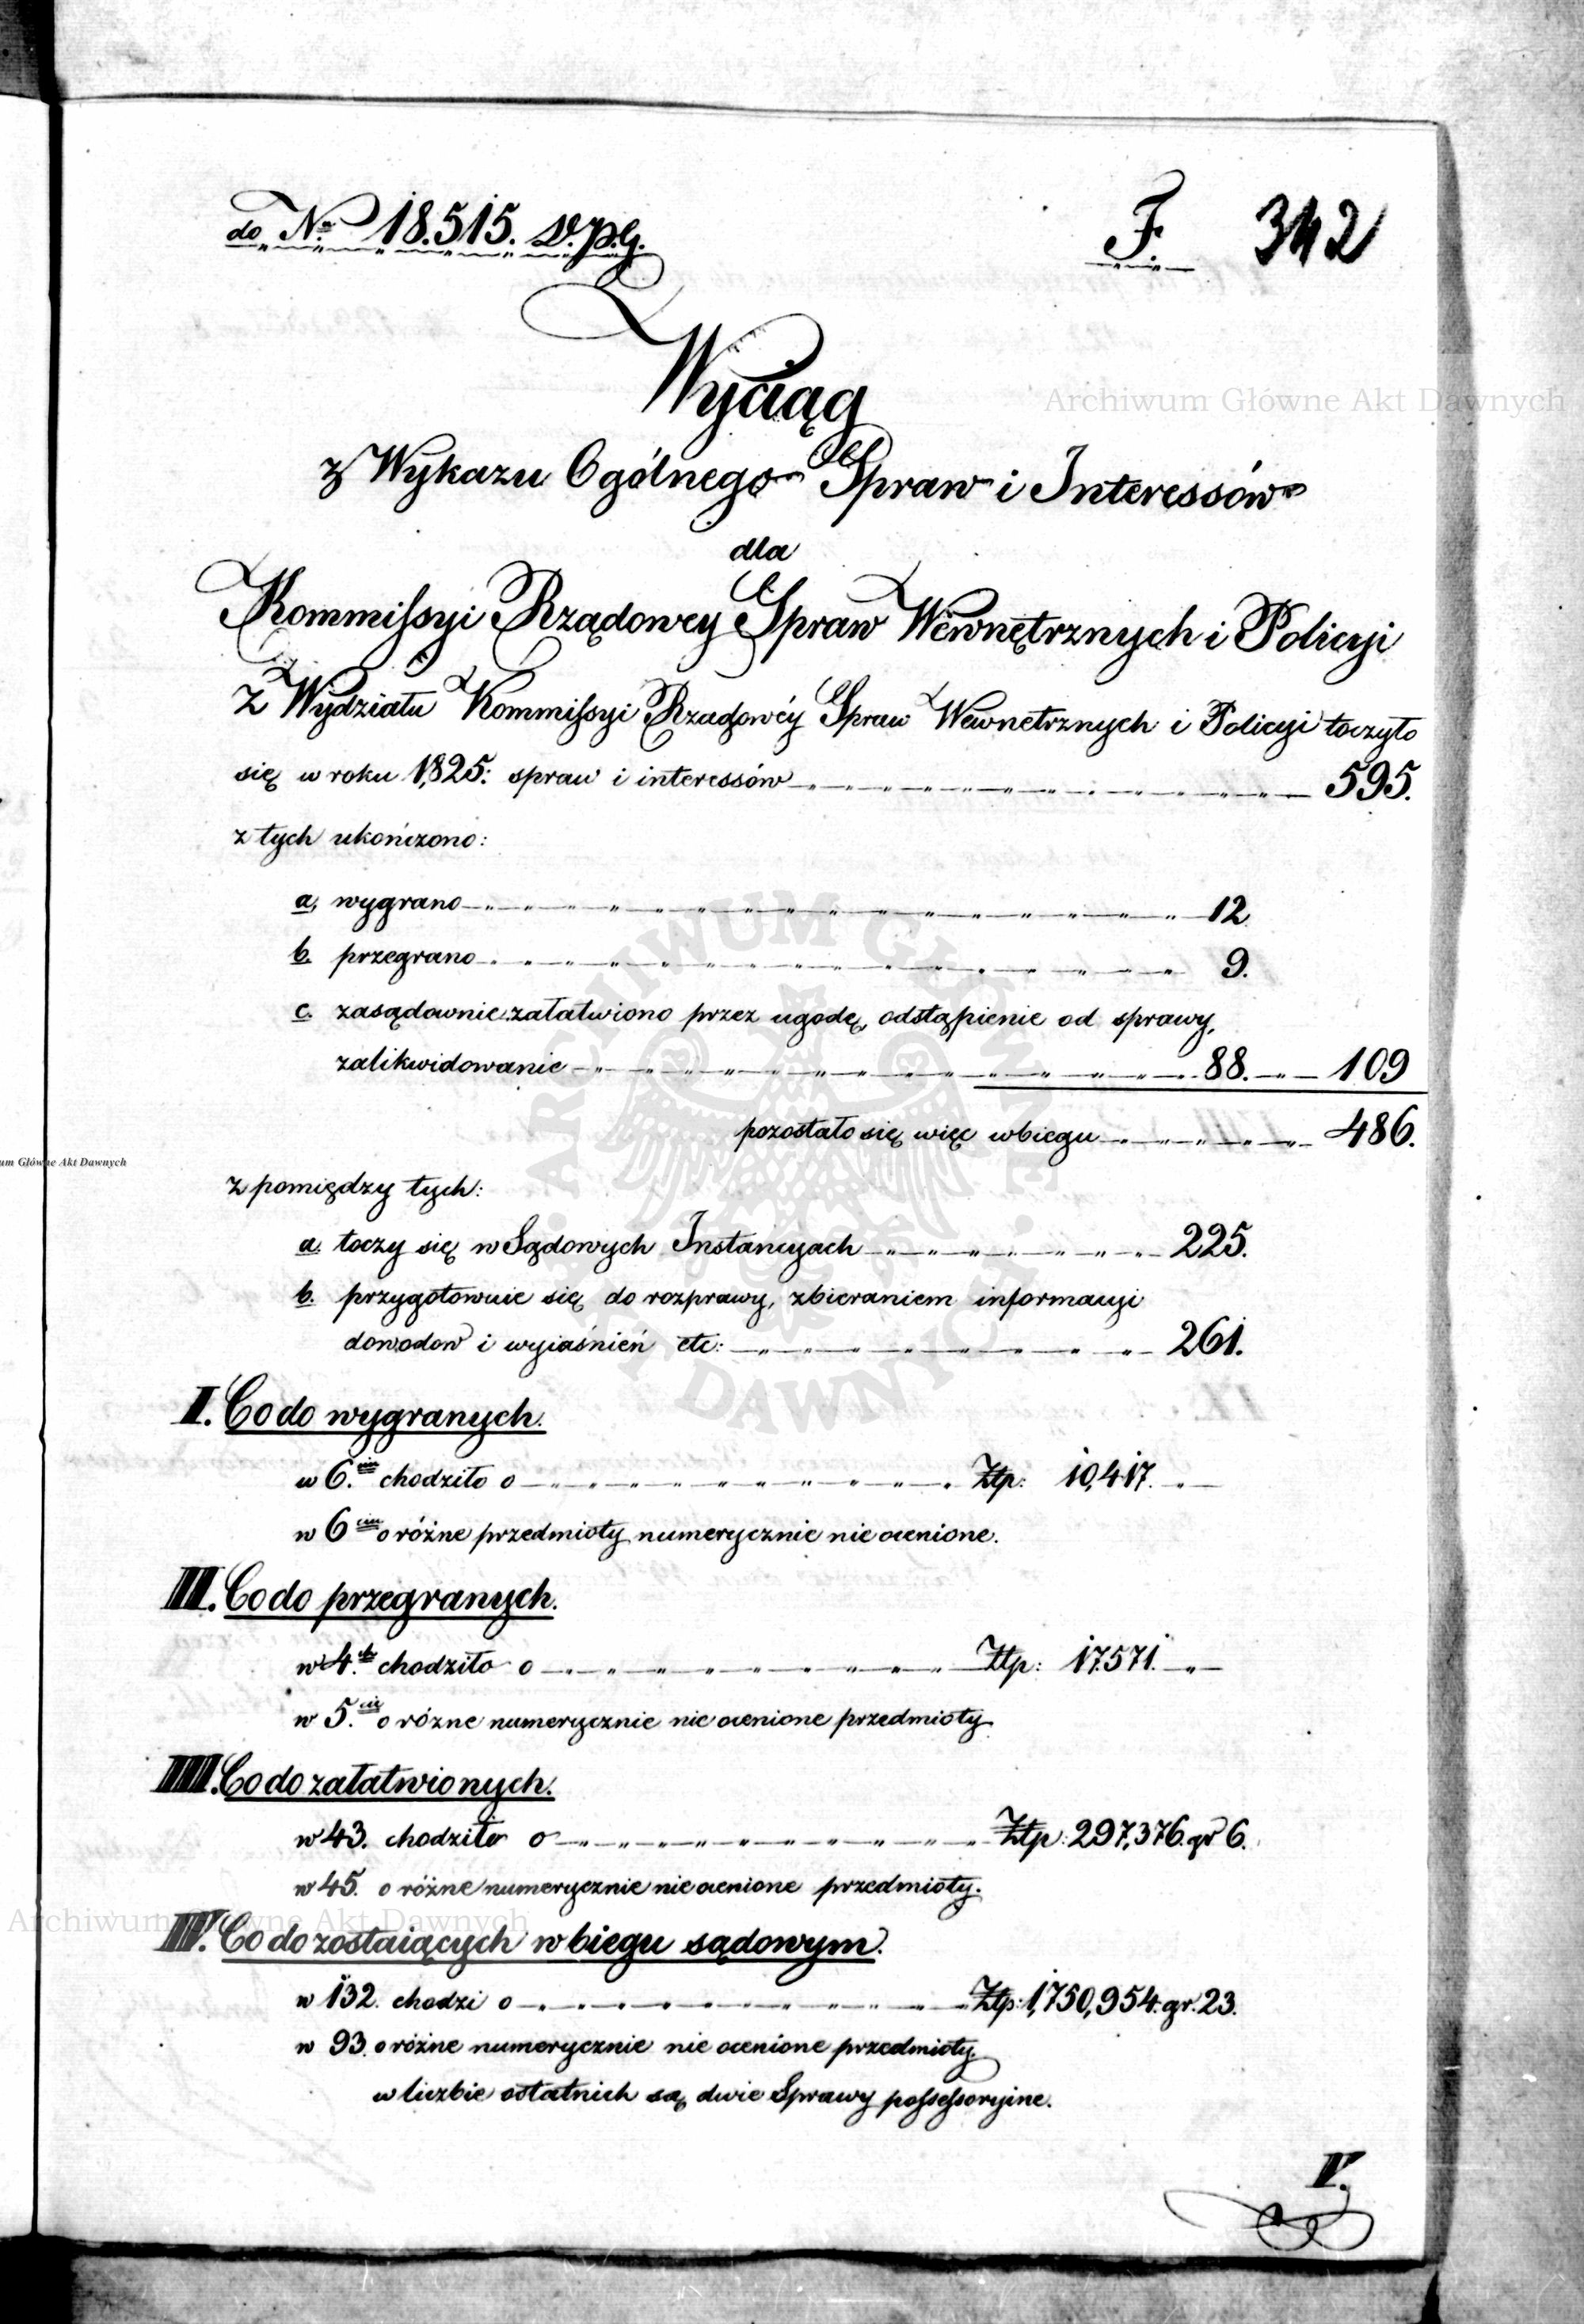 do No. 18.515. D.P.G.
F. 342
Wyciąg
z Wykazu Ogólnego Spraw i Interessów
dla
Kommissyi Rządowey Spraw Wewnętrznych i Policyi
Z Wydziału Kommissyi Rządowéy Spraw Wewnętrznych i Policyi toczyło
się w roku 1825: spraw i interessów 595.
z tych ukończono:
a, wygrano 12
b. przegrano 9.
c. zasądownie załatwiono przez ugodę, odstąpienie od sprawy,
zalikwidowanie 88. 109
pozostało się więc w biegu 486.
z pomiędzy tych:
a. toczy się w Sądowych Instancyach 225.
b. przygotownie się do rozprawy, zbieraniem informacyi
dowodow i wyiaśnień etc: 261.
I. Co do wygranych.
w 6.ciu chodziło o Złp: 10,417. "
w 6ciu o różne przedmioty numerycznie nie ocenione.
II. Co do przegranych.
w 4.ch chodziło o Złp: 17571. "
w 5.ciu o rózne numerycznie nie ocenione przedmioty
III. Co do załatwionych.
w 43. chodziło o Złp: 297,376. gr 6.
w 45. o różne numerycznie nie ocenione przedmioty.
IV. Co do zostaiących w biegu sądowym.
w 132. chodzi o Złp: 1,750,954. gr. 23.
w 93. o różne numerycznie nie ocenione przedmioty.
w liczbie ostatnich są dwie Sprawy possessoryine.
V.
Archiwum Główne Akt Dawnych
um Główne Akt Dawnych
ARCHIWUM GŁÓWNE AKT DAWNYCH
Archiwum Główne Akt Dawnych